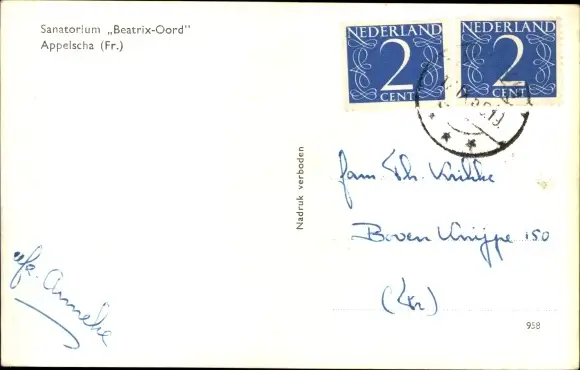 Sanatorium „Beatrix-Oord”
Appelscha (Fr.)
NEDERLAND
2
CENT
NEDERLAND
2
CENT
Nadruk verboden
fam. Th. Krikke
Boven Knijpe 150
(Fr.)
afz. Anneke
958